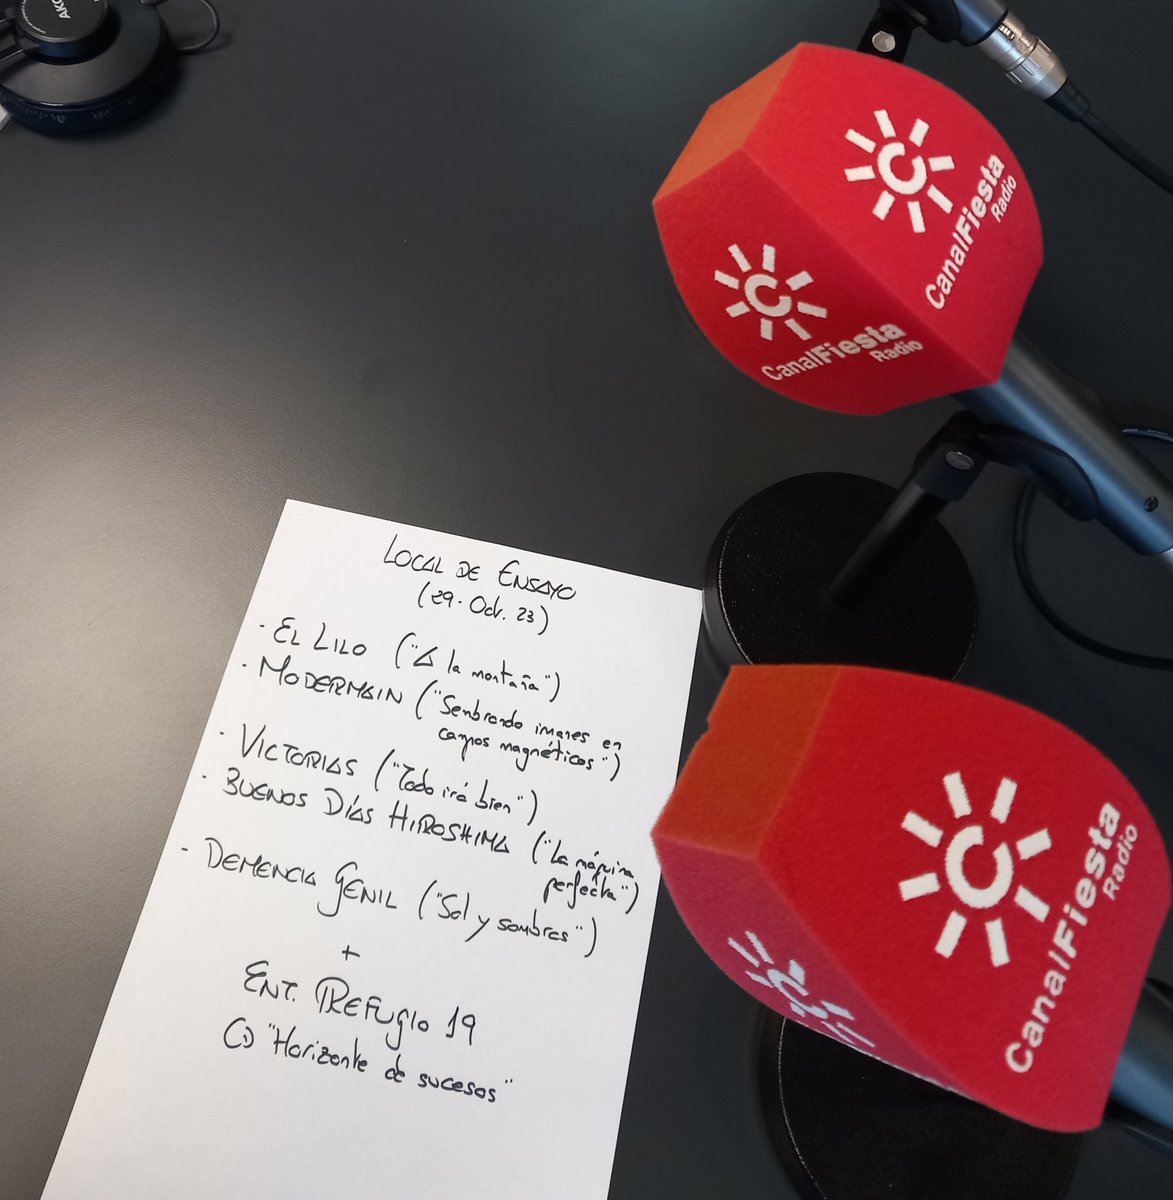 AKG
CanalFiesta
Radio
CanalFiesta
Radio
LOCAL DE ENSAYO
(29. Oct. 23)
· EL LILO ("A la montaña")
· MODERMAIN ("Sembrando imanes en
campos magnéticos")
· VICTORIAS ("Todo irá bien")
· BUENOS DÍAS HIROSHIMA ("La máquina
perfecta")
· DEMENCIA GENIL ("Sol y sombras")
+
ENT. REFUGIO 19
"Horizonte de sucesos"
CanalFiesta
Radio